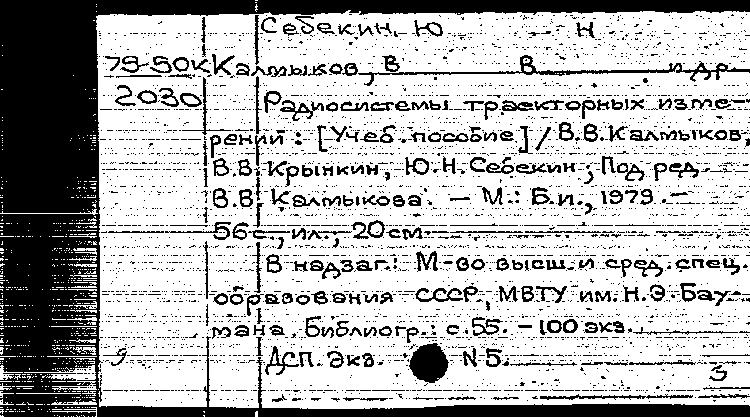 Себекин, Ю Н
79-50К Калмыков, В В и др
2030 Радиосистемы траекторных изме-
рений : [Учеб. пособие] / В.В. Калмыков,
В.В. Крынкин, Ю.Н. Себекин ; Под ред.
В.В. Калмыкова. — М.: Б.и., 1979. —
56с., ил.; 20см
В надзаг.: М-во высш. и сред. спец.
образования СССР, МВТУ им. Н.Э. Бау-
мана. Библиогр.: с.55. — 100 экз.
9 ДСП. Экз. N 5.
3